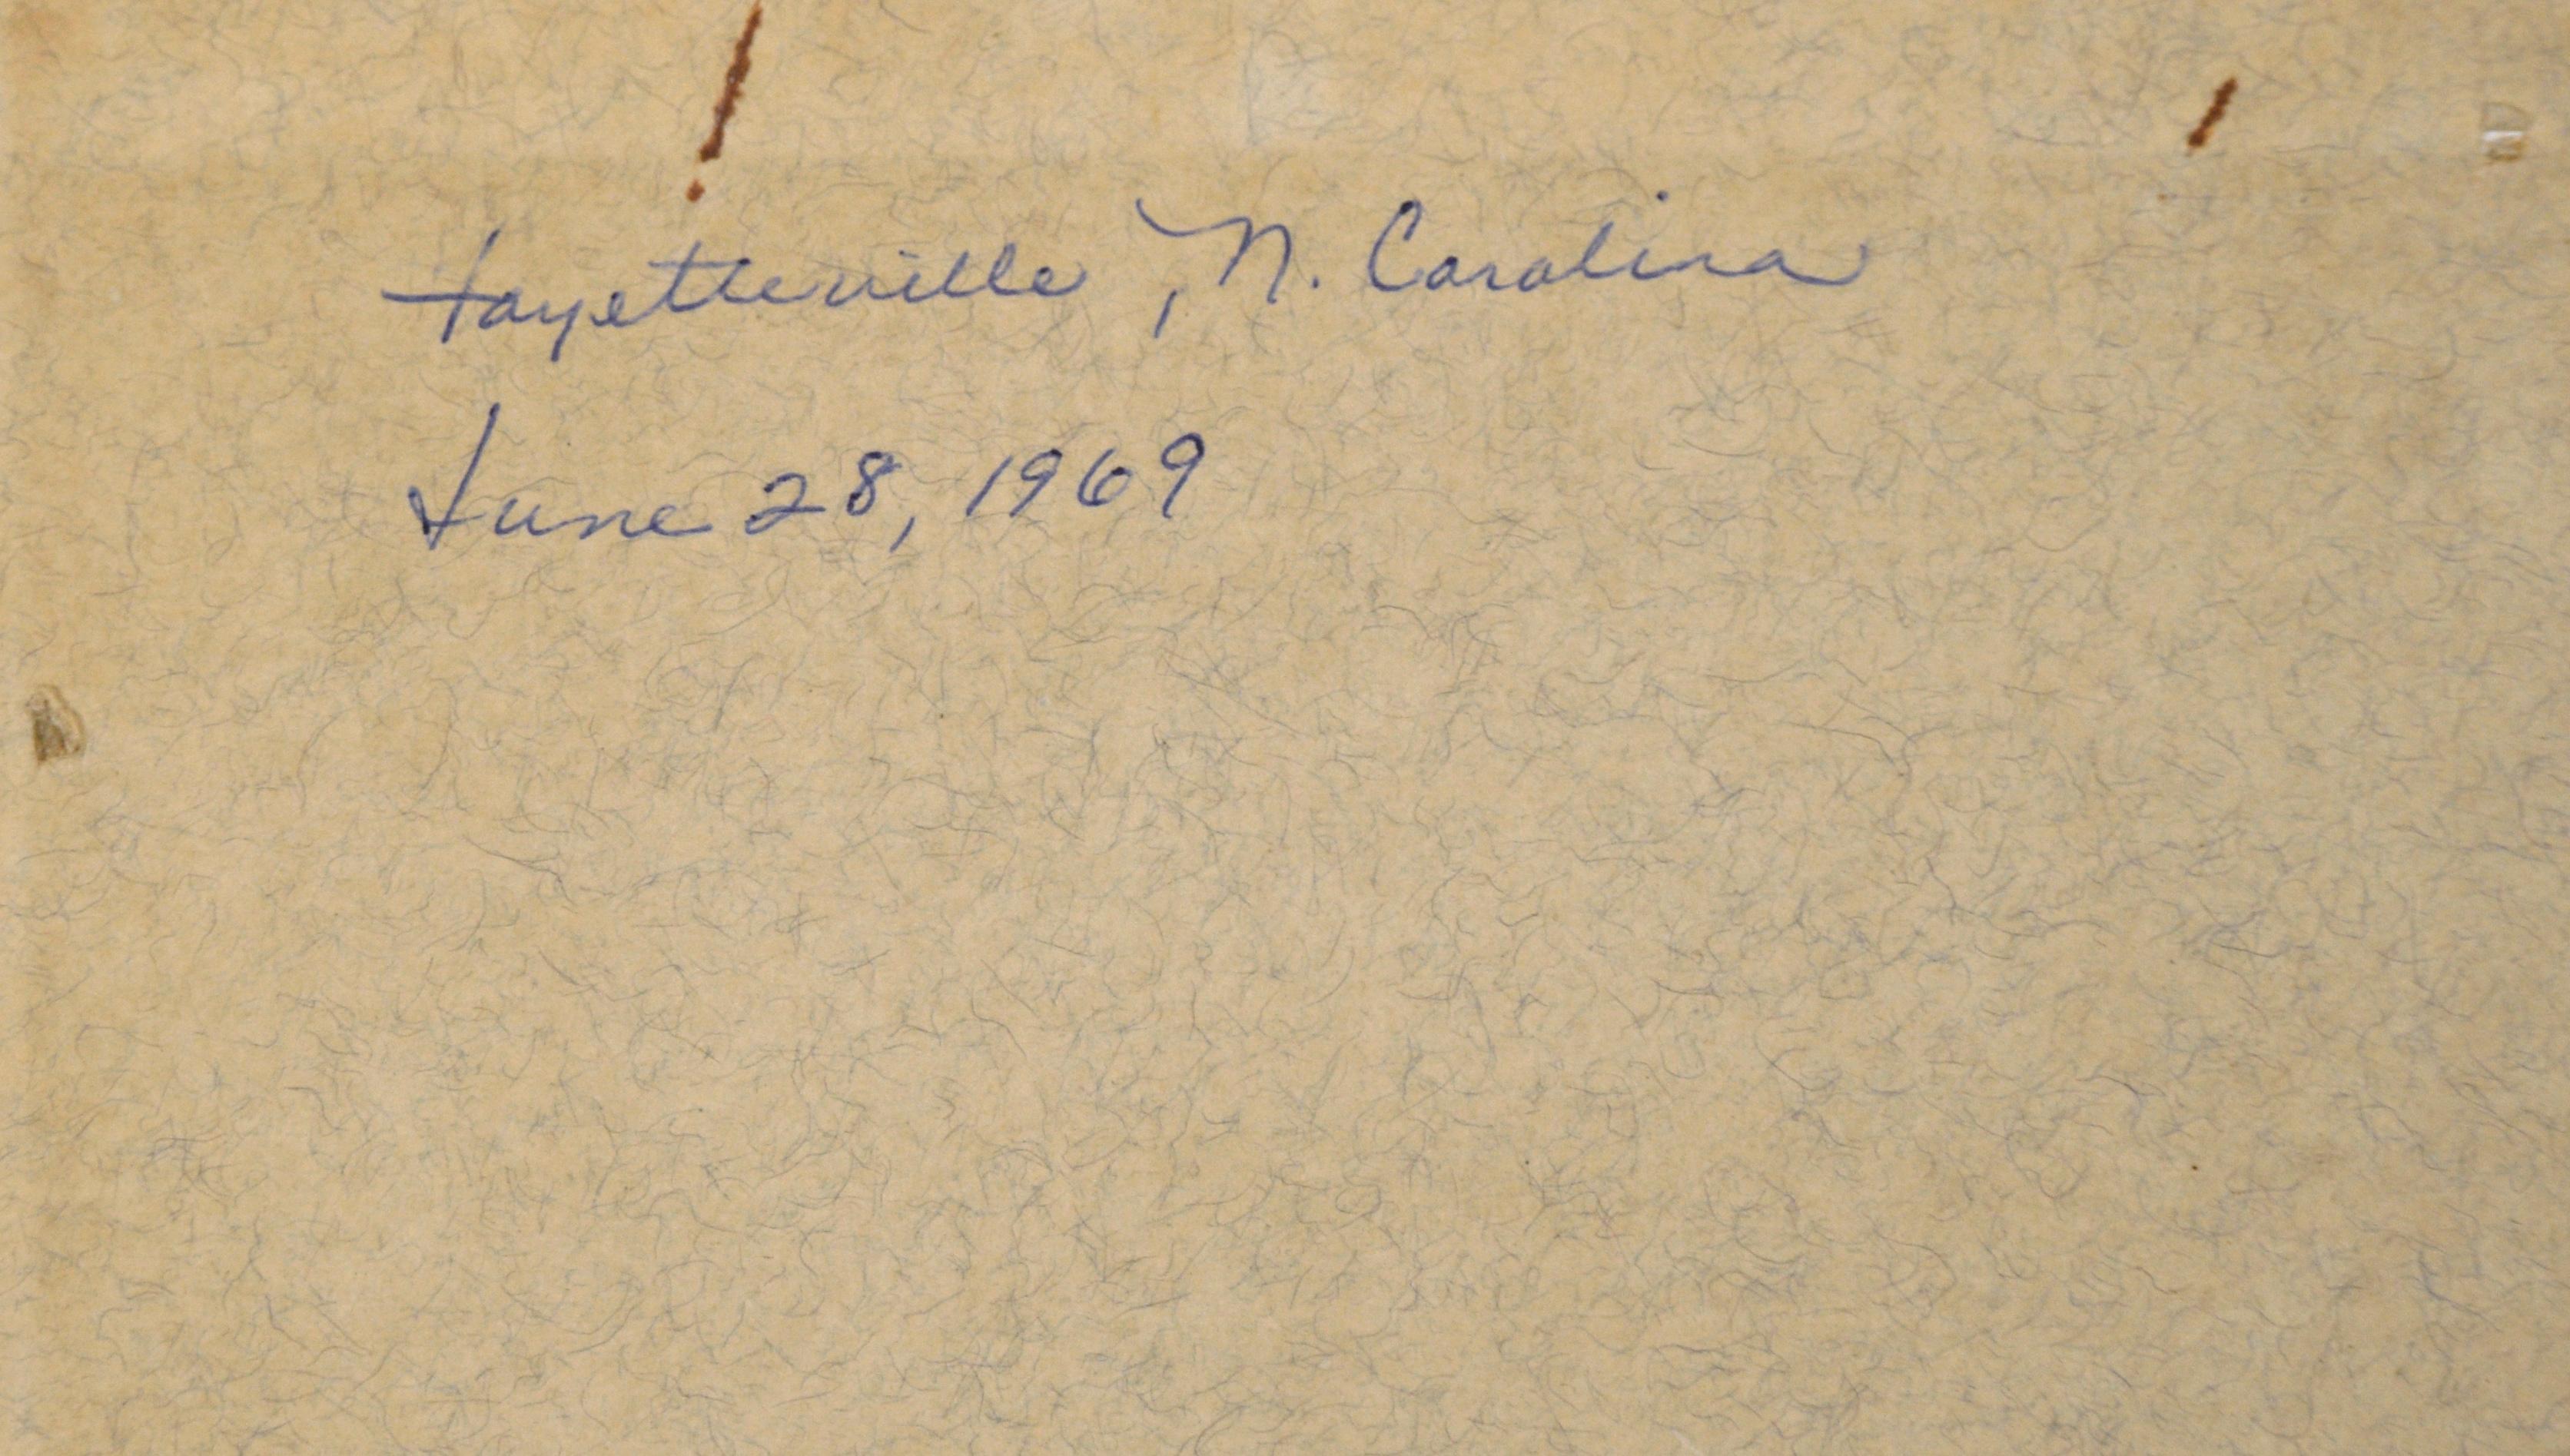 Fayetteville, N. Carolina
June 28, 1969